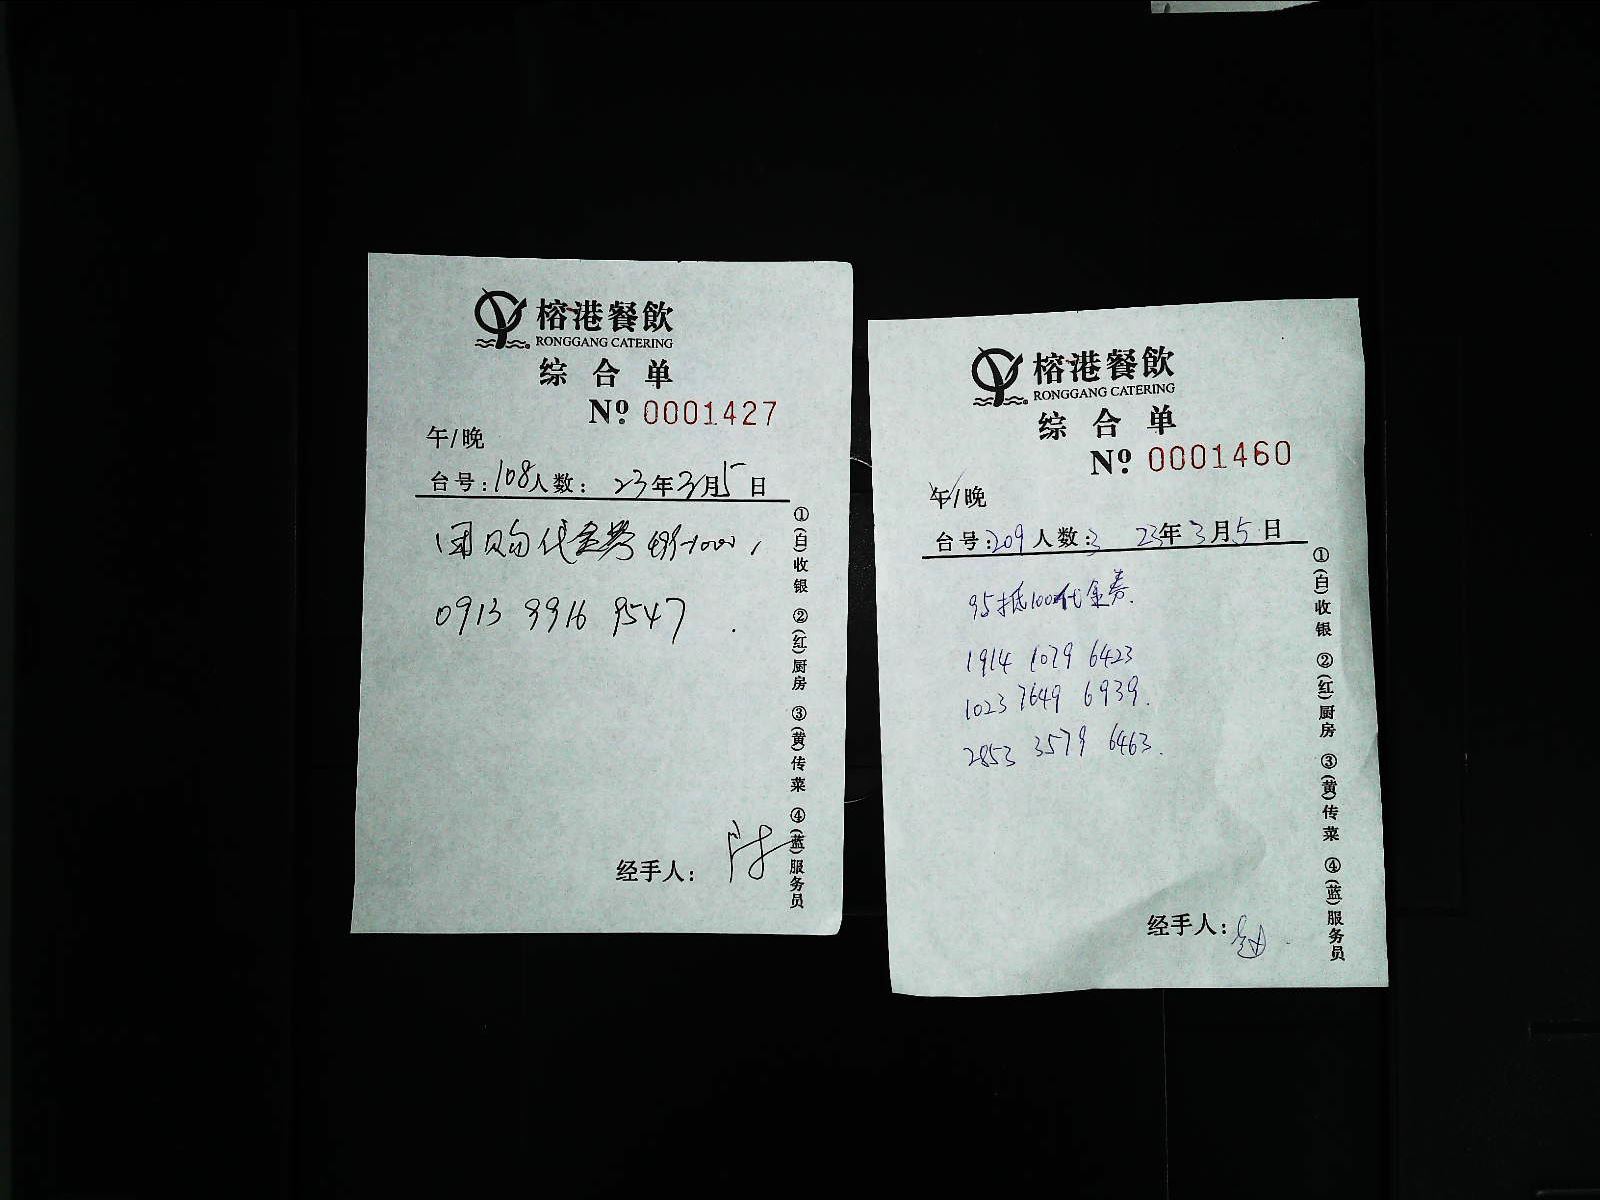 榕港餐飲
RONGGANG CATERING
综合单
Nº 0001427
午/晚
台号:108人数: 23年3月5日
团购代金券 495-1000,
0913 9916 9547 .
经手人:
①(白)收银 ②(红)厨房 ③(黄)传菜 ④(蓝)服务员
榕港餐飲
RONGGANG CATERING
综合单
Nº 0001460
午/晚
台号:209人数:3 23年3月5日
95抵100代金券.
1914 1079 6423
1023 7649 6939.
2853 3579 6463.
经手人:
①(白)收银 ②(红)厨房 ③(黄)传菜 ④(蓝)服务员